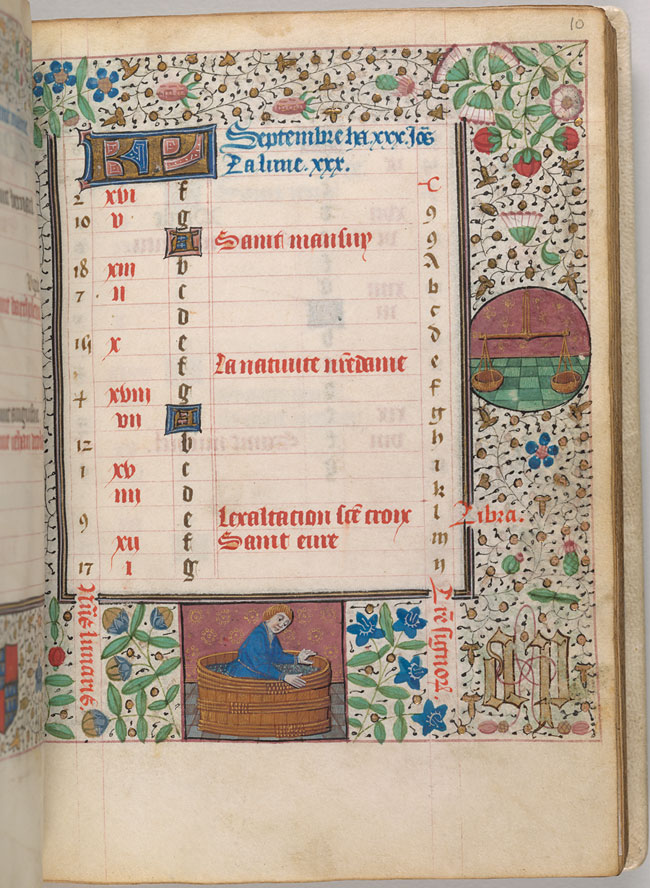 10
KL Septembre ha xxx. Jo͞s
La lune .xxx.
C
2 xvi f
10 v g 9
A Saint mansuy 9
18 xiii b A
7 ii c b
d c
x e d
f La nativite n͞redame e
4 xviii g f
vii A g
12 b h
1 xv c i
iiii d k
9 e Lexaltacion sc͞e croix l Libra.
xii f Saint eure m
17 i g n